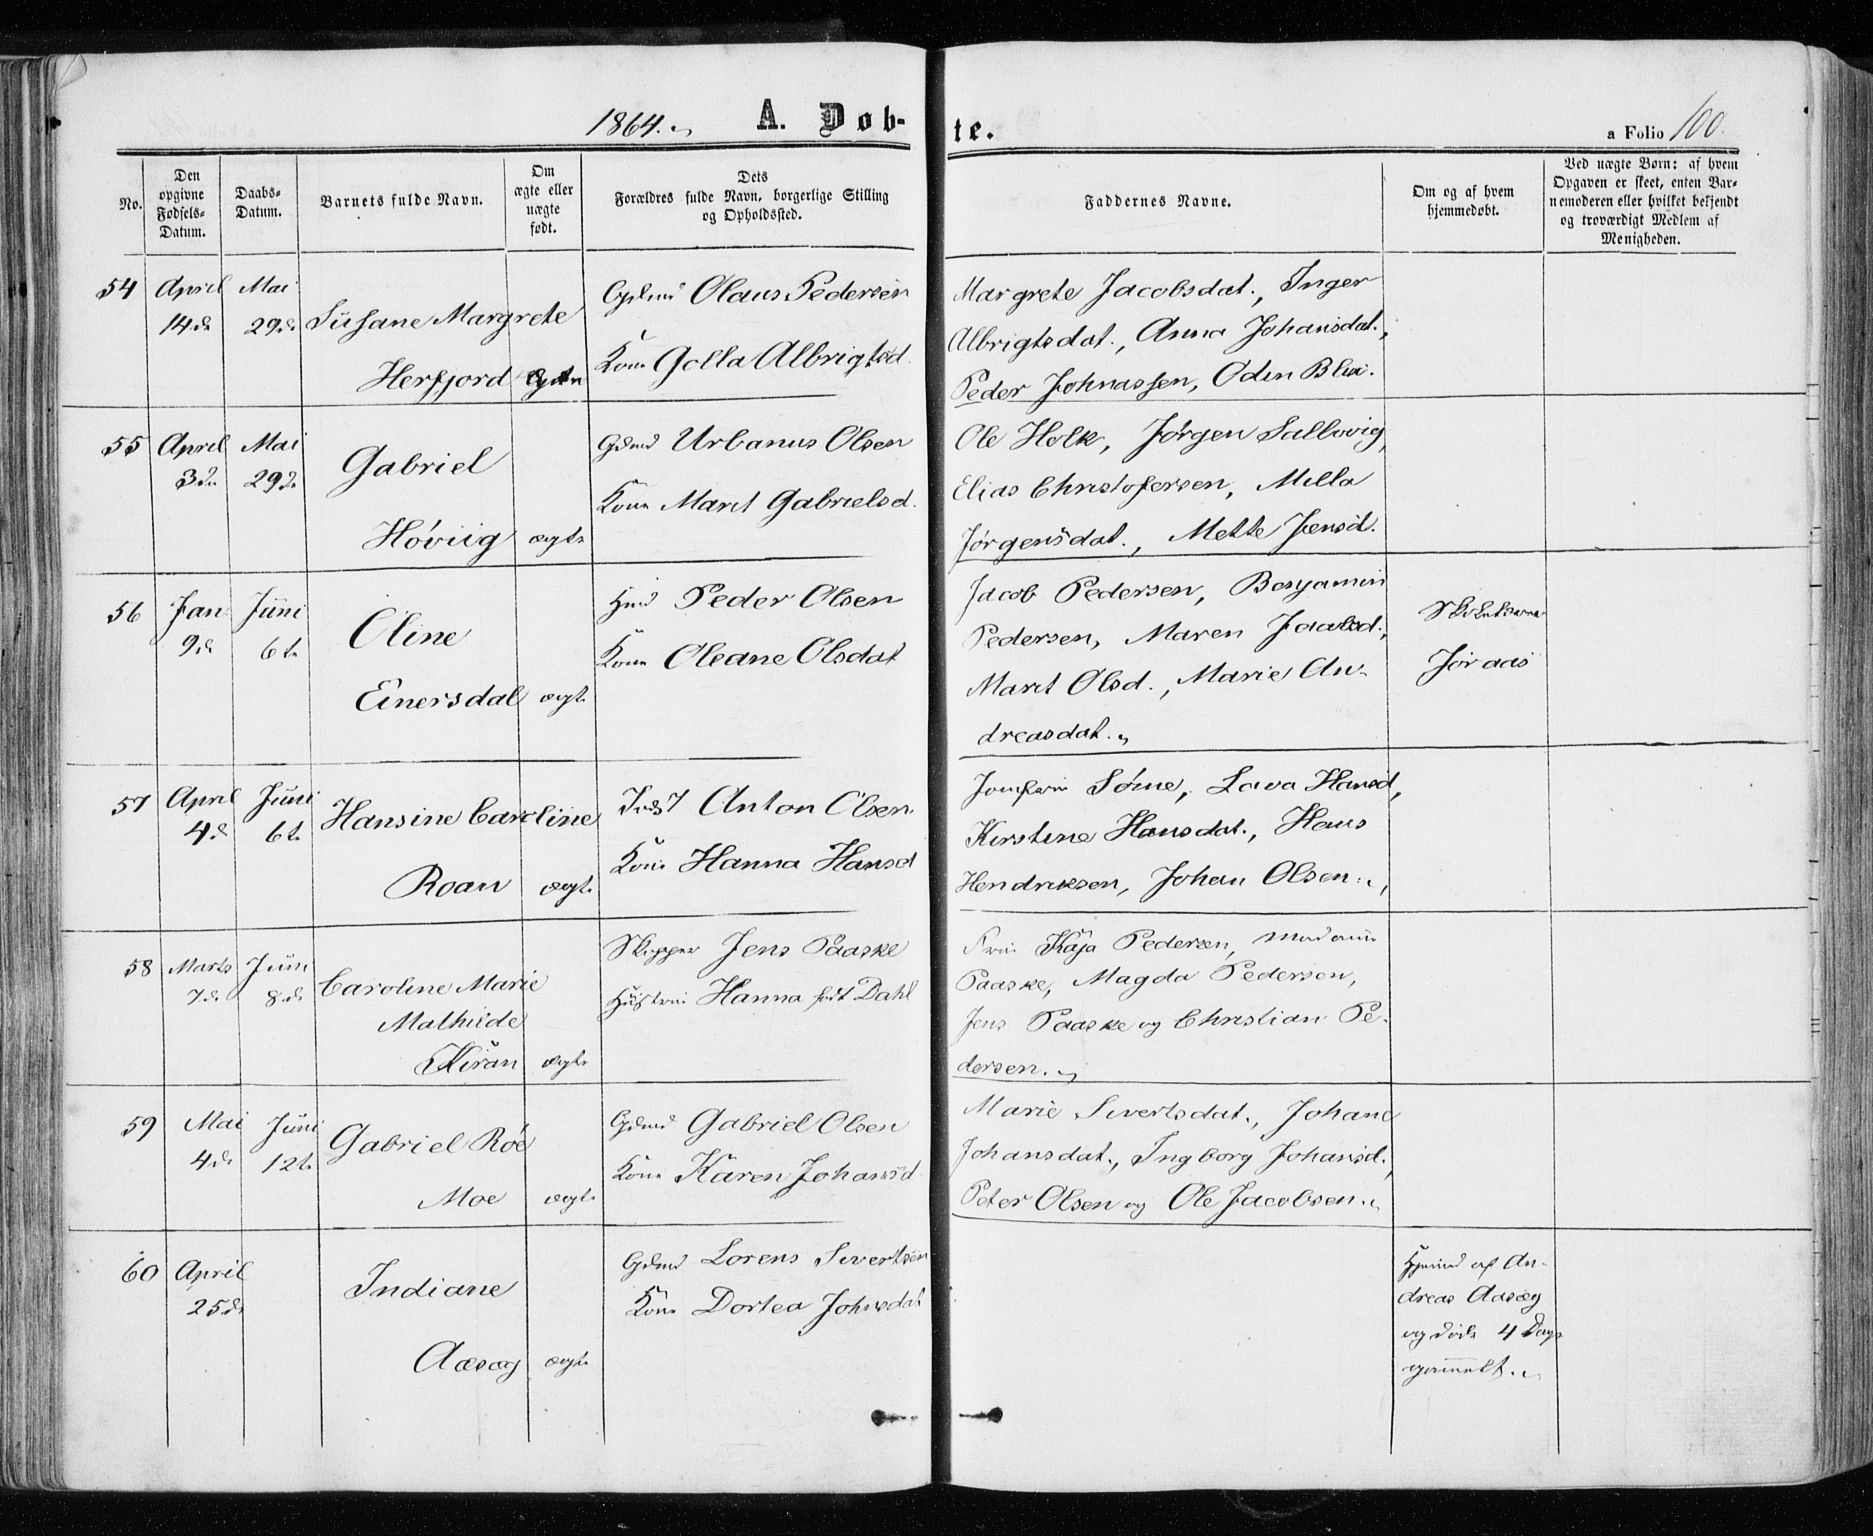 1864. A. Døb-
te. a Folio 100.
No.
Den opgivne Fødsels-Datum.
Daabs-Datum.
Barnets fulde Navn.
Om ægte eller uægte født.
Dets Forældres fulde Navn, borgerlige Stilling og Opholdssted.
Faddernes Navne.
Om og af hvem hjemmedøbt.
Ved uægte Børn: af hvem Opgaven er skeet, enten Barnemoderen eller hvilket bekjendt og troværdigt Medlem af Menigheden.
54 April 14d. Mai 29d.
Susane Margrete
Herfjord
Gdmd Olaus Pedersen
Kone Golla Albrigtsd.
Margrete Jacobsdat., Inger
Albrigtsdat., Anna Johansdat.,
Peder Johnassen, Oden Blix.
55 April 3d. Mai 29d.
Gabriel
Høviig ægte
Gdmd Urbanus Olsen
Kone Marit Gabrielsd.
Ole Holk, Jørgen Sallovig,
Elias Christofersen, Milla
Jørgensdat., Mette Jensd.
56 Jan 9d. Juni 6t.
Oline
Einersdal ægt.
Hmd Peder Olsen
Kone Oleane Olsdat
Jacob Pedersen, Benjamin
Pedersen, Maren Jacobsd.,
Marit Olsd., Marie An-
dreasdat.
Joraas
57 April 4d. Juni 6t.
Hansine Caroline
Roan ægt.
Inds. Anton Olsen
Kone Hanna Hansd
Jomfru Sørne, Lava Hansd,
Kirstine Hansdat., Hans
Hendriksen, Johan Olsen.
58 Marts 7d. Juni 8d.
Caroline Marie
Mathilde
Kiran ægt.
Skipper Jens Paaske
Hustru Hanna født Dahl
Fru Kaja Pedersen, Madame
Paaske, Magda Pedersen,
Jens Paaske og Christian Pe-
dersen.
59 Mai 4d. Juni 12t.
Gabriel Røe
Moe ægt.
Gdmd Gabriel Olsen
Kone Karen Johansd.
Marie Sivertsdat., Johane
Johansdat., Ingborg Johansd.,
Peter Olsen og Ole Jacobsen.
60 April 25d.
Indiane
Aasæg ægt.
Gdmd Lorens Sivertsen
Kone Dortea Johnsdat
Hjemmd af An-
dreas Aasæg
og døde 4 Dage
gammelt.